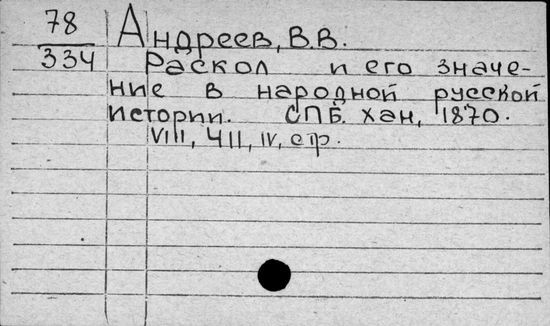 78
334
Андреев, В.В.
Раскол и его значе-
ние в народной русской
истории. СПБ. Хан, 1870.
VIII, 411, IV, стр.